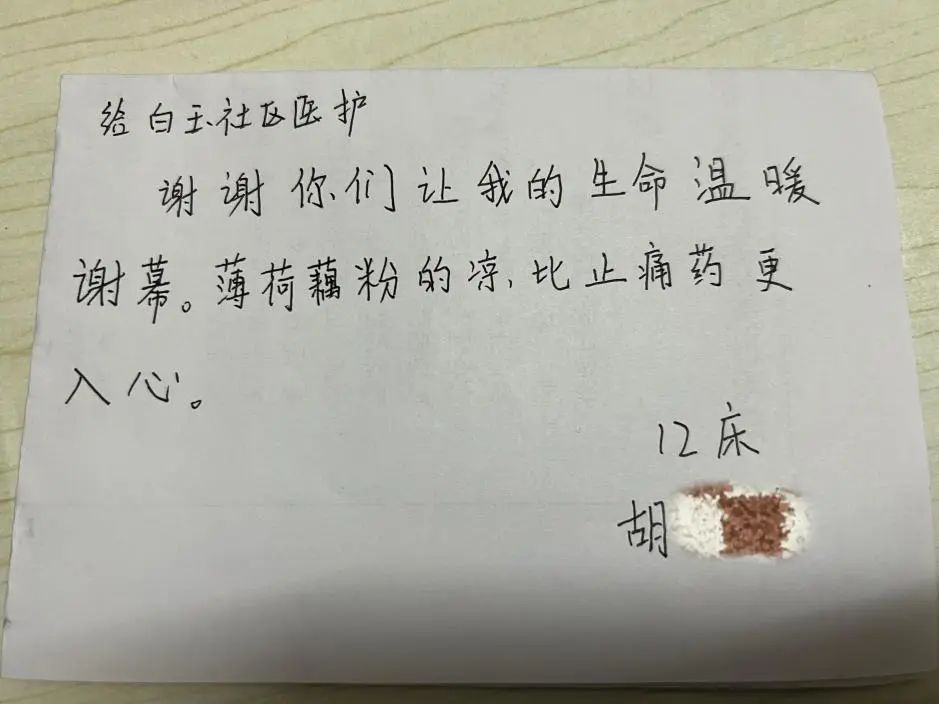 给白玉社区医护
谢谢你们让我的生命温暖
谢幕。薄荷藕粉的凉,比止痛药更
入心。
12床
胡